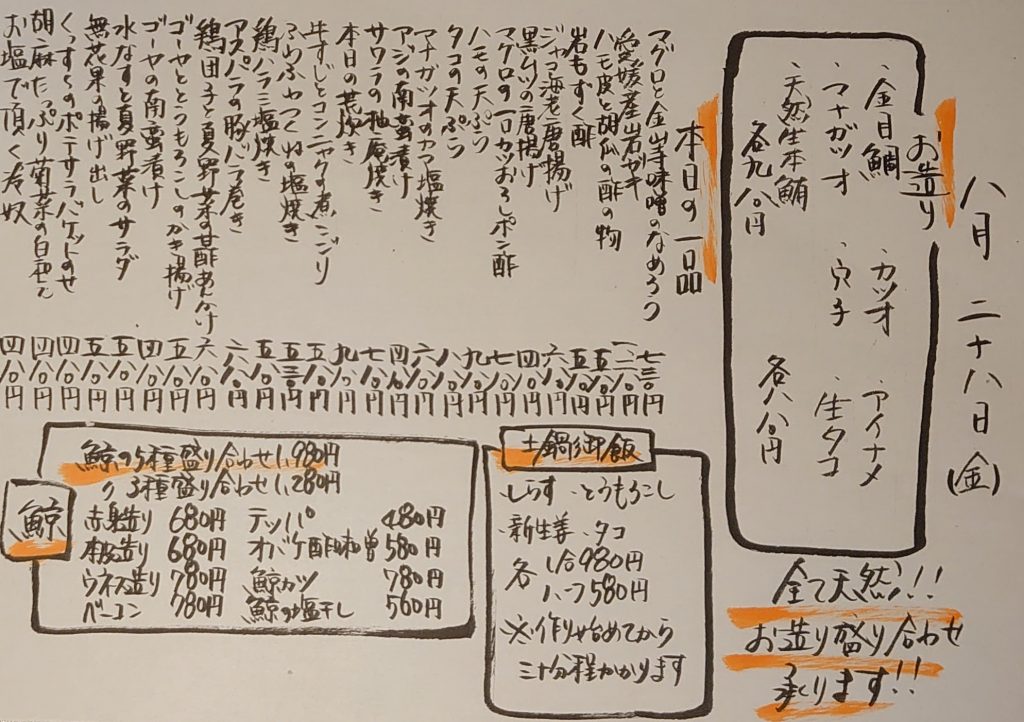 八月二十八日(金)
お造り
・金目鯛 ・カツオ ・アイナメ
・マナガツオ ・穴子 ・生タコ
各八八〇円
・天然生本鮪
各九八〇円
全て天然!!
お造り盛り合わせ
承ります!!
本日の一品
マグロと金山寺味噌のなめろう 七三〇円
愛媛産岩ガキ 一二八〇円
ハモ皮と胡瓜の酢の物 五八〇円
岩もずく酢 五八〇円
ジャコ海老唐揚げ 六八〇円
黒ムツの唐揚げ 四八〇円
マグロの一口カツおろしポン酢 七八〇円
ハモの天ぷら 九八〇円
タコの天ぷら 八八〇円
マナガツオのカマ塩焼き 六八〇円
アジの南蛮漬け 四八〇円
サワラの柚庵焼き 七八〇円
本日の荒炊き 九八〇円
牛すじとコンニャクの煮こごり 五八〇円
ふわふわつくねの塩焼き 五三〇円
鶏ハラミ塩焼き 五八〇円
アスパラの豚バラ巻き 六八〇円
鶏団子と夏野菜の甘酢あんかけ 六八〇円
ゴーヤととうもろこしのかき揚げ 五八〇円
ゴーヤの南蛮漬け 四八〇円
水なすと夏野菜のサラダ 五八〇円
無花果の揚げ出し 五八〇円
ポテサラバケットのせ 四八〇円
胡麻たっぷり菊菜の白和え 四八〇円
お塩で頂く冷奴 四八〇円
土鍋御飯
・しらす ・とうもろこし
・新生姜 ・タコ
各 1合980円
ハーフ580円
※作り始めてから
三十分程かかります
鯨
鯨の5種盛り合わせ1,980円
〃 3種盛り合わせ1,280円
赤身造り 680円 テッパ 480円
本皮造り 680円 オバケ酢味噌 580円
ウネス造り 780円 鯨カツ 780円
ベーコン 780円 鯨の塩干し 560円